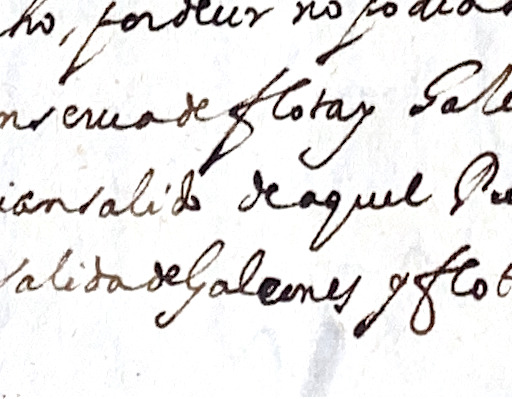 ho, por decir no podia
nserua de flota y Gale
ian salido de aquel Pu
salida de Galeones y flot